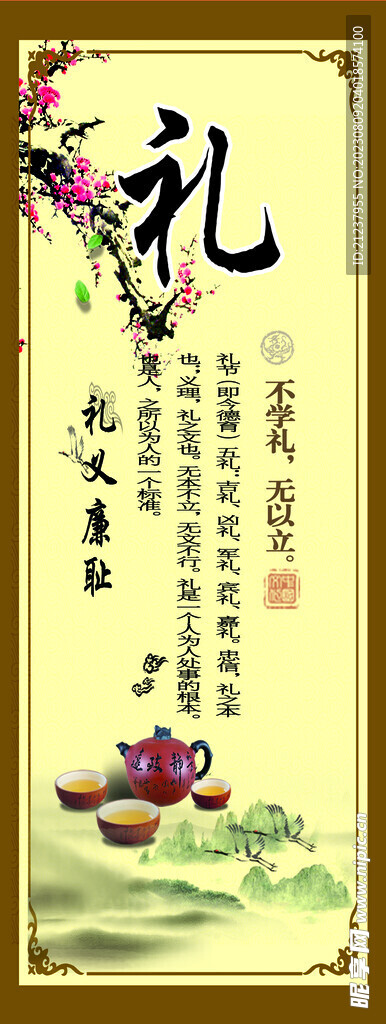 礼
不学礼，无以立。
礼节（即今德育）五礼：吉礼、凶礼、军礼、宾礼、嘉礼。忠信，礼之本
也；义理，礼之文也。无本不立，无文不行。礼是一个人为人处事的根本。
也是人，之所以为人的一个标准。
礼义廉耻
ID:21237955 NO:20230809204018574100
昵享网 www.nipic.cn